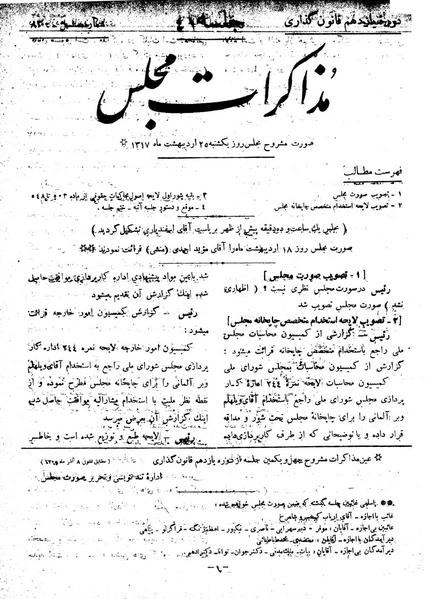 دوره یازدهم قانون گذاری
جلسه ۴۱
مذاکرات مجلس
صورت مشروح مجلس روز یکشنبه ۲۵ اردیبهشت ماه ۱۳۱۷
فهرست مطالب
۱ - تصویب صورت مجلس
۲ - تصویب لایحه استخدام متخصص چاپخانه مجلس
۳ - بقیه شور اول لایحه اصول محاکمات حقوقی از ماده
۴ - موقع و دستور جلسه آتیه - ختم جلسه
( مجلس یک ساعت و دو دقیقه پیش از ظهر بریاست آقای اسفندیاری تشکیل گردید )
صورت مجلس روز ۱۸ اردیبهشت ماه را آقای مؤید احمدی (منشی) قرائت نمودند
[ ۱ - تصویب صورت مجلس ]
رئیس - در صورت مجلس نظری نیست ؟ ( اظهاری
نشد ) صورت مجلس تصویب شد
[ ۲ - تصویب لایحه استخدام متخصص چاپخانه مجلس ]
رئیس - گزارشی از کمیسیون محاسبات مجلس
ملی راجع باستخدام متخصص چاپخانه قرائت میشود :
گزارش از کمیسیون محاسبات مجلس شورای ملی
کمیسیون محاسبات لایحه نمره ۲۴۴ اداره کار
پردازی مجلس شورای ملی راجع به استخدام آقای ویلهلم
وبر آلمانی را برای چاپخانه مجلس تحت شور و مداقه
قرار داده و با توضیحاتی که از طرف کارپردازی داده
شد بامین مواد پیشنهادی اداره کارپردازی موافقت حاصل
شده اینک گزارش آن تقدیم میشود
رئیس - گزارش کمیسیون امور خارجه قرائت
میشود :
کمیسیون امور خارجه لایحه نمره ۲۴۴ اداره کار
پردازی مجلس شورای ملی راجع به استخدام آقای ویلهلم
وبر آلمانی را برای چاپخانه مجلس مطرح نموده و از
نقطه نظر ملیت با استخدام مشارالیه موافقت حاصل شد
اینک گزارش آن بعرض میرسد
رئیس - لایحه طبع و توزیع شده است و بخاطر
عین مذاکرات مشروح چهل و یکمین جلسه از دوره یازدهم قانون گذاری
اداره تندنویسی و تحریر صورت مجلس
اسامی غائبین جلسه گذشته که ضمن صورت مجلس خوانده شده
غائب با اجازه - آقای ارباب کیخسرو شاهرخ
غائبین بی اجازه - آقایان : موقر - دبیر سهرابی - ناصری - نیکپور - اعظم زنگنه - قراگزلو
دیر آمدگان با اجازه - آقایان : محمد طباطبائی
دیر آمدگان بی اجازه - آقایان : بیات - ملک مدنی - دکتر جوان - نواب
- ۱ -